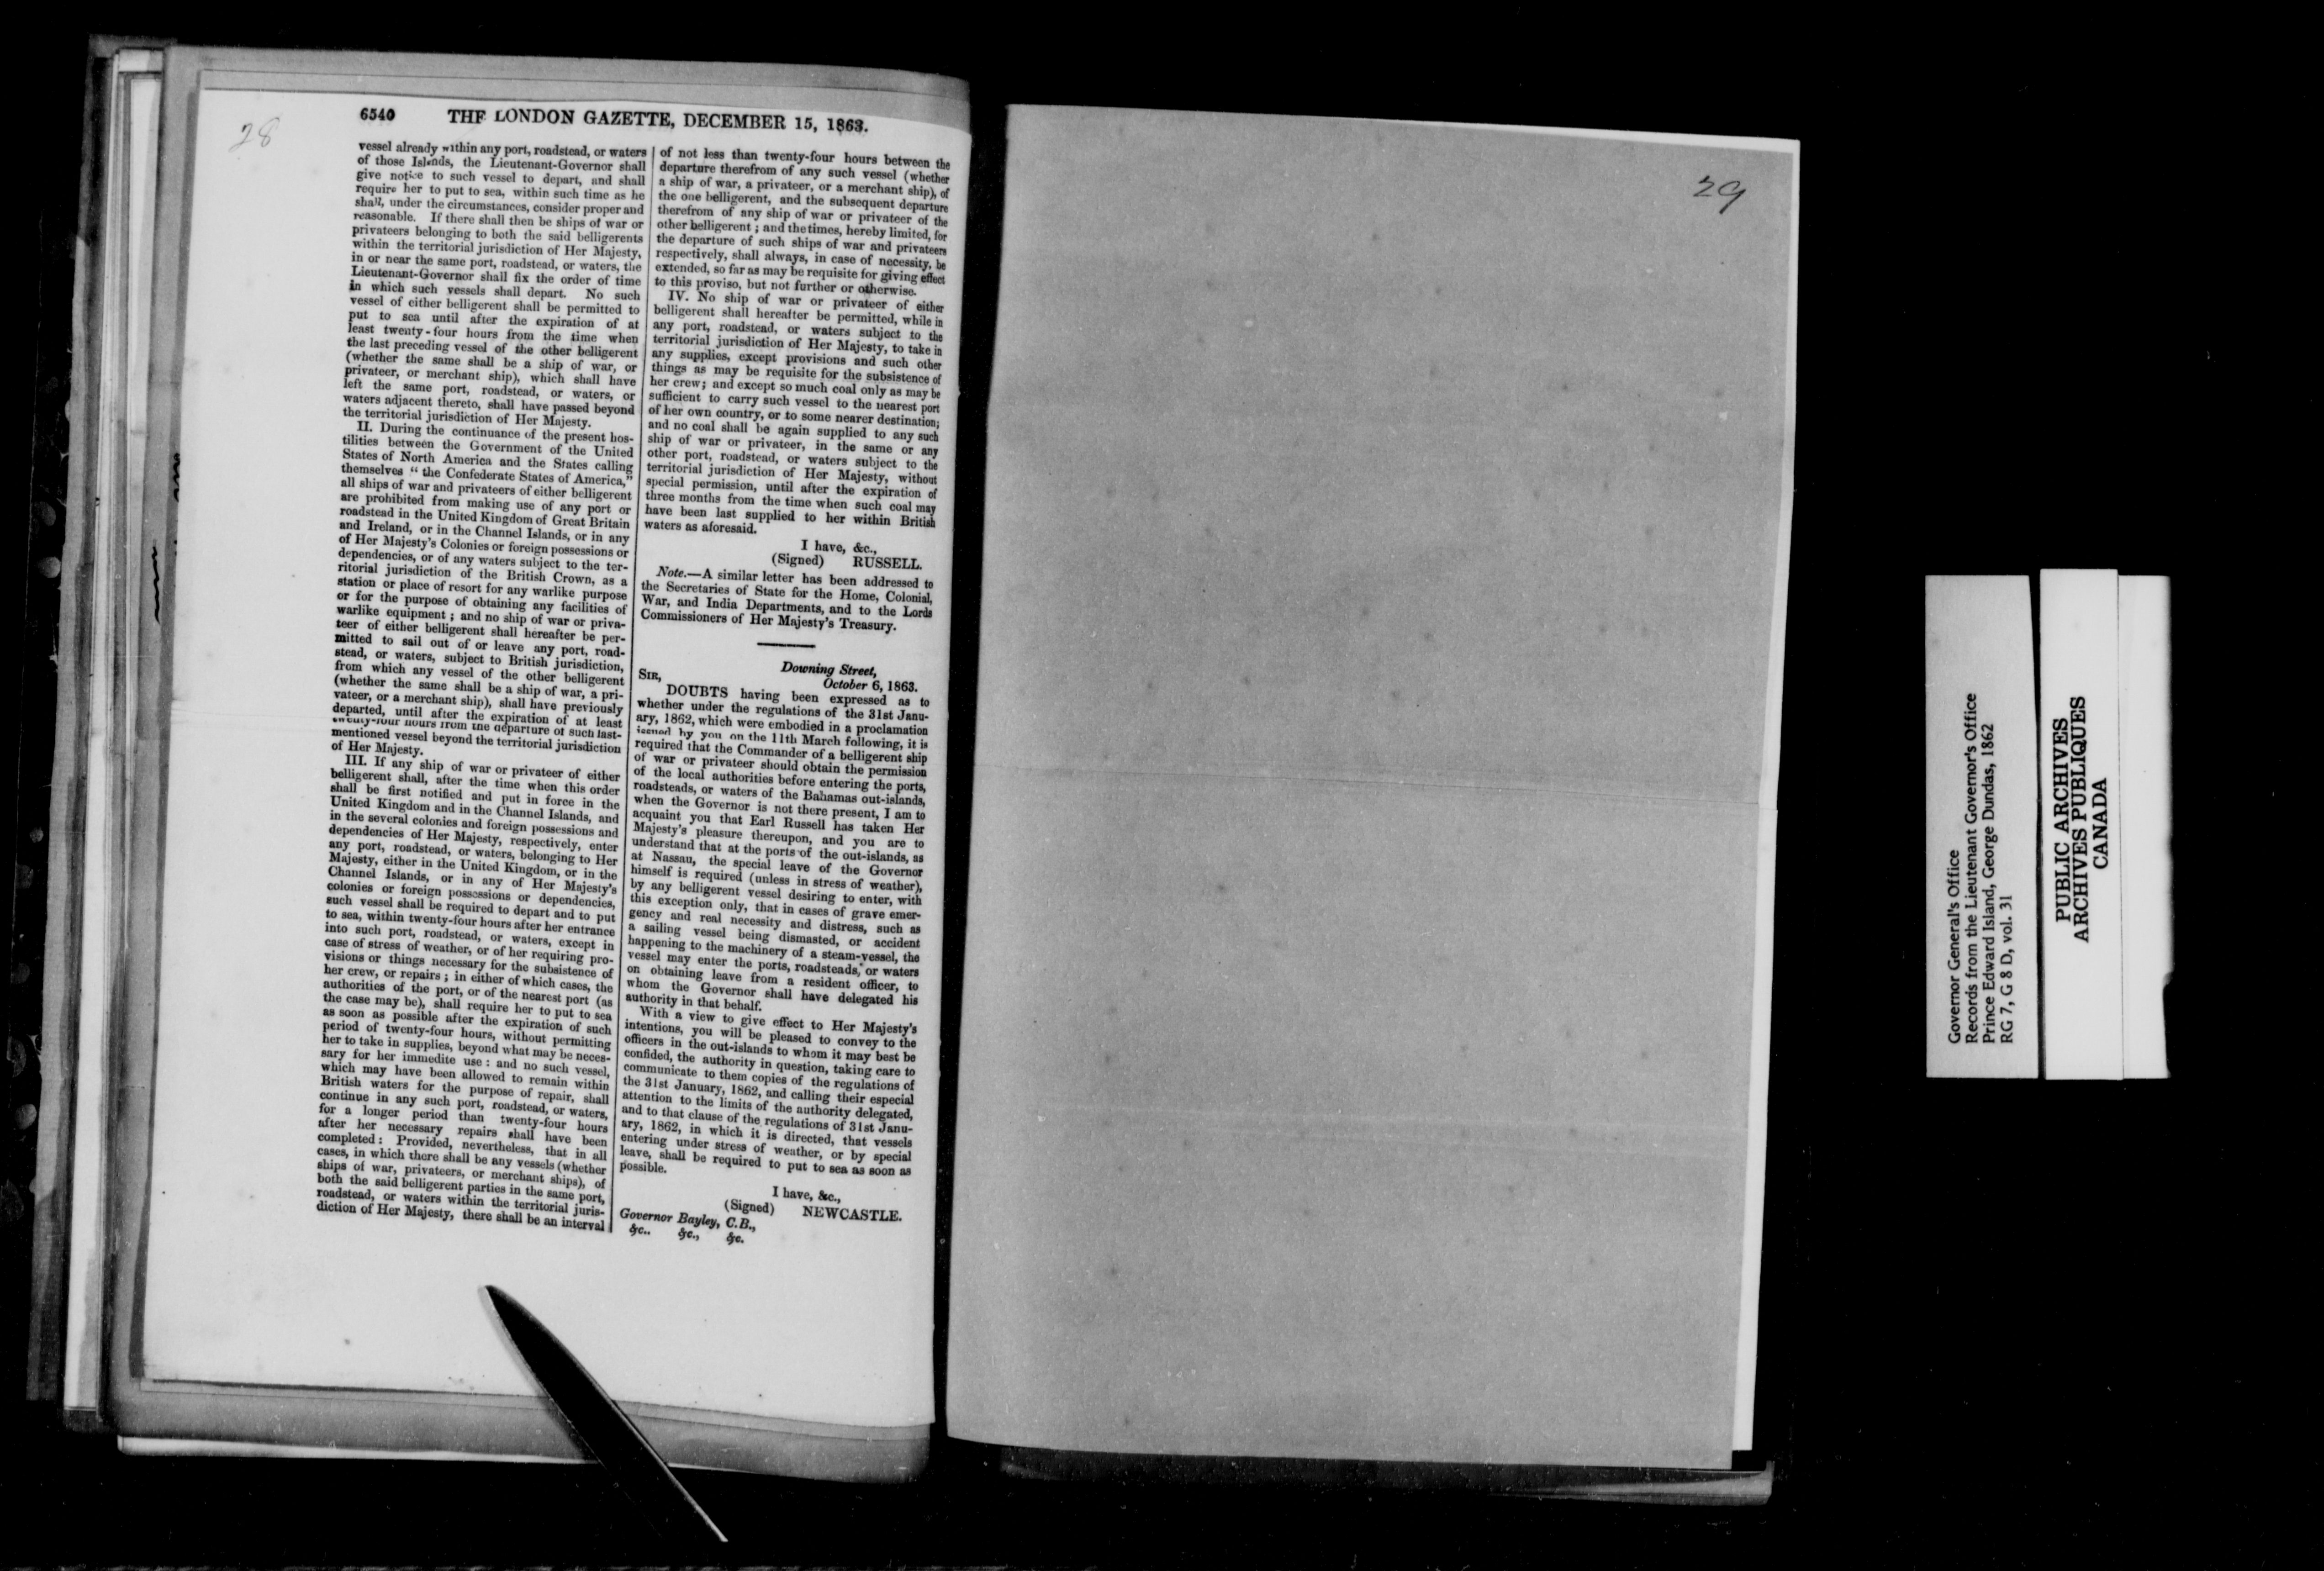 28
6540 THE LONDON GAZETTE, DECEMBER 15, 1863.
vessel already within any port, roadstead, or waters
of those Islands, the Lieutenant-Governor shall
give notice to such vessel to depart, and shall
require her to put to sea, within such time as he
shall, under the circumstances, consider proper and
reasonable. If there shall then be ships of war or
privateers belonging to both the said belligerents
within the territorial jurisdiction of Her Majesty,
in or near the same port, roadstead, or waters, the
Lieutenant-Governor shall fix the order of time
in which such vessels shall depart. No such
vessel of either belligerent shall be permitted to
put to sea until after the expiration of at
least twenty-four hours from the time when
the last preceding vessel of the other belligerent
(whether the same shall be a ship of war, or
privateer, or merchant ship), which shall have
left the same port, roadstead, or waters, or
waters adjacent thereto, shall have passed beyond
the territorial jurisdiction of Her Majesty.
II. During the continuance of the present hos-
tilities between the Government of the United
States of North America and the States calling
themselves “ the Confederate States of America,”
all ships of war and privateers of either belligerent
are prohibited from making use of any port or
roadstead in the United Kingdom of Great Britain
and Ireland, or in the Channel Islands, or in any
of Her Majesty's Colonies or foreign possessions or
dependencies, or of any waters subject to the ter-
ritorial jurisdiction of the British Crown, as a
station or place of resort for any warlike purpose
or for the purpose of obtaining any facilities of
warlike equipment ; and no ship of war or priva-
teer of either belligerent shall hereafter be per-
mitted to sail out of or leave any port, road-
stead, or waters, subject to British jurisdiction,
from which any vessel of the other belligerent
(whether the same shall be a ship of war, a pri-
vateer, or a merchant ship), shall have previously
departed, until after the expiration of at least
twenty-four hours from the departure of such last-
mentioned vessel beyond the territorial jurisdiction
of Her Majesty.
III. If any ship of war or privateer of either
belligerent shall, after the time when this order
shall be first notified and put in force in the
United Kingdom and in the Channel Islands, and
in the several colonies and foreign possessions and
dependencies of Her Majesty, respectively, enter
any port, roadstead, or waters, belonging to Her
Majesty, either in the United Kingdom, or in the
Channel Islands, or in any of Her Majesty's
colonies or foreign possessions or dependencies,
such vessel shall be required to depart and to put
to sea, within twenty-four hours after her entrance
into such port, roadstead, or waters, except in
case of stress of weather, or of her requiring pro-
visions or things necessary for the subsistence of
her crew, or repairs ; in either of which cases, the
authorities of the port, or of the nearest port (as
the case may be), shall require her to put to sea
as soon as possible after the expiration of such
period of twenty-four hours, without permitting
her to take in supplies, beyond what may be neces-
sary for her immedite use : and no such vessel,
which may have been allowed to remain within
British waters for the purpose of repair, shall
continue in any such port, roadstead, or waters,
for a longer period than twenty-four hours
after her necessary repairs shall have been
completed : Provided, nevertheless, that in all
cases, in which there shall be any vessels (whether
ships of war, privateers, or merchant ships), of
both the said belligerent parties in the same port,
roadstead, or waters within the territorial juris-
diction of Her Majesty, there shall be an interval
of not less than twenty-four hours between the
departure therefrom of any such vessel (whether
a ship of war, a privateer, or a merchant ship), of
the one belligerent, and the subsequent departure
therefrom of any ship of war or privateer of the
other belligerent ; and the times, hereby limited, for
the departure of such ships of war and privateers
respectively, shall always, in case of necessity, be
extended, so far as may be requisite for giving effect
to this proviso, but not further or otherwise.
IV. No ship of war or privateer of either
belligerent shall hereafter be permitted, while in
any port, roadstead, or waters subject to the
territorial jurisdiction of Her Majesty, to take in
any supplies, except provisions and such other
things as may be requisite for the subsistence of
her crew; and except so much coal only as may be
sufficient to carry such vessel to the nearest port
of her own country, or to some nearer destination;
and no coal shall be again supplied to any such
ship of war or privateer, in the same or any
other port, roadstead, or waters subject to the
territorial jurisdiction of Her Majesty, without
special permission, until after the expiration of
three months from the time when such coal may
have been last supplied to her within British
waters as aforesaid.
I have, &c.,
(Signed) RUSSELL.
Note.—A similar letter has been addressed to
the Secretaries of State for the Home, Colonial,
War, and India Departments, and to the Lords
Commissioners of Her Majesty's Treasury.
Downing Street,
SIR, October 6, 1863.
DOUBTS having been expressed as to
whether under the regulations of the 31st Janu-
ary, 1862, which were embodied in a proclamation
issued by you on the 11th March following, it is
required that the Commander of a belligerent ship
of war or privateer should obtain the permission
of the local authorities before entering the ports,
roadsteads, or waters of the Bahamas out-islands,
when the Governor is not there present, I am to
acquaint you that Earl Russell has taken Her
Majesty's pleasure thereupon, and you are to
understand that at the ports of the out-islands, as
at Nassau, the special leave of the Governor
himself is required (unless in stress of weather),
by any belligerent vessel desiring to enter, with
this exception only, that in cases of grave emer-
gency and real necessity and distress, such as
a sailing vessel being dismasted, or accident
happening to the machinery of a steam-vessel, the
vessel may enter the ports, roadsteads, or waters
on obtaining leave from a resident officer, to
whom the Governor shall have delegated his
authority in that behalf.
With a view to give effect to Her Majesty's
intentions, you will be pleased to convey to the
officers in the out-islands to whom it may best be
confided, the authority in question, taking care to
communicate to them copies of the regulations of
the 31st January, 1862, and calling their especial
attention to the limits of the authority delegated,
and to that clause of the regulations of 31st Janu-
ary, 1862, in which it is directed, that vessels
entering under stress of weather, or by special
leave, shall be required to put to sea as soon as
possible.
I have, &c.,
(Signed) NEWCASTLE.
Governor Bayley, C.B.,
&c.. &c., &c.
29
Governor General's Office
Records from the Lieutenant Governor's Office
Prince Edward Island, George Dundas, 1862
RG 7, G 8 D, vol. 31
PUBLIC ARCHIVES
ARCHIVES PUBLIQUES
CANADA